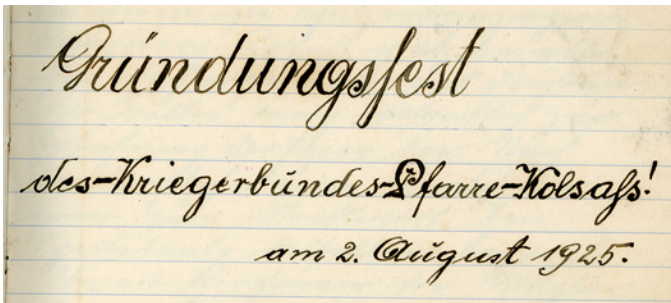 Gründungsfest
des-Kriegerbundes-Pfarre-Kolsaſs!
am 2. August 1925.